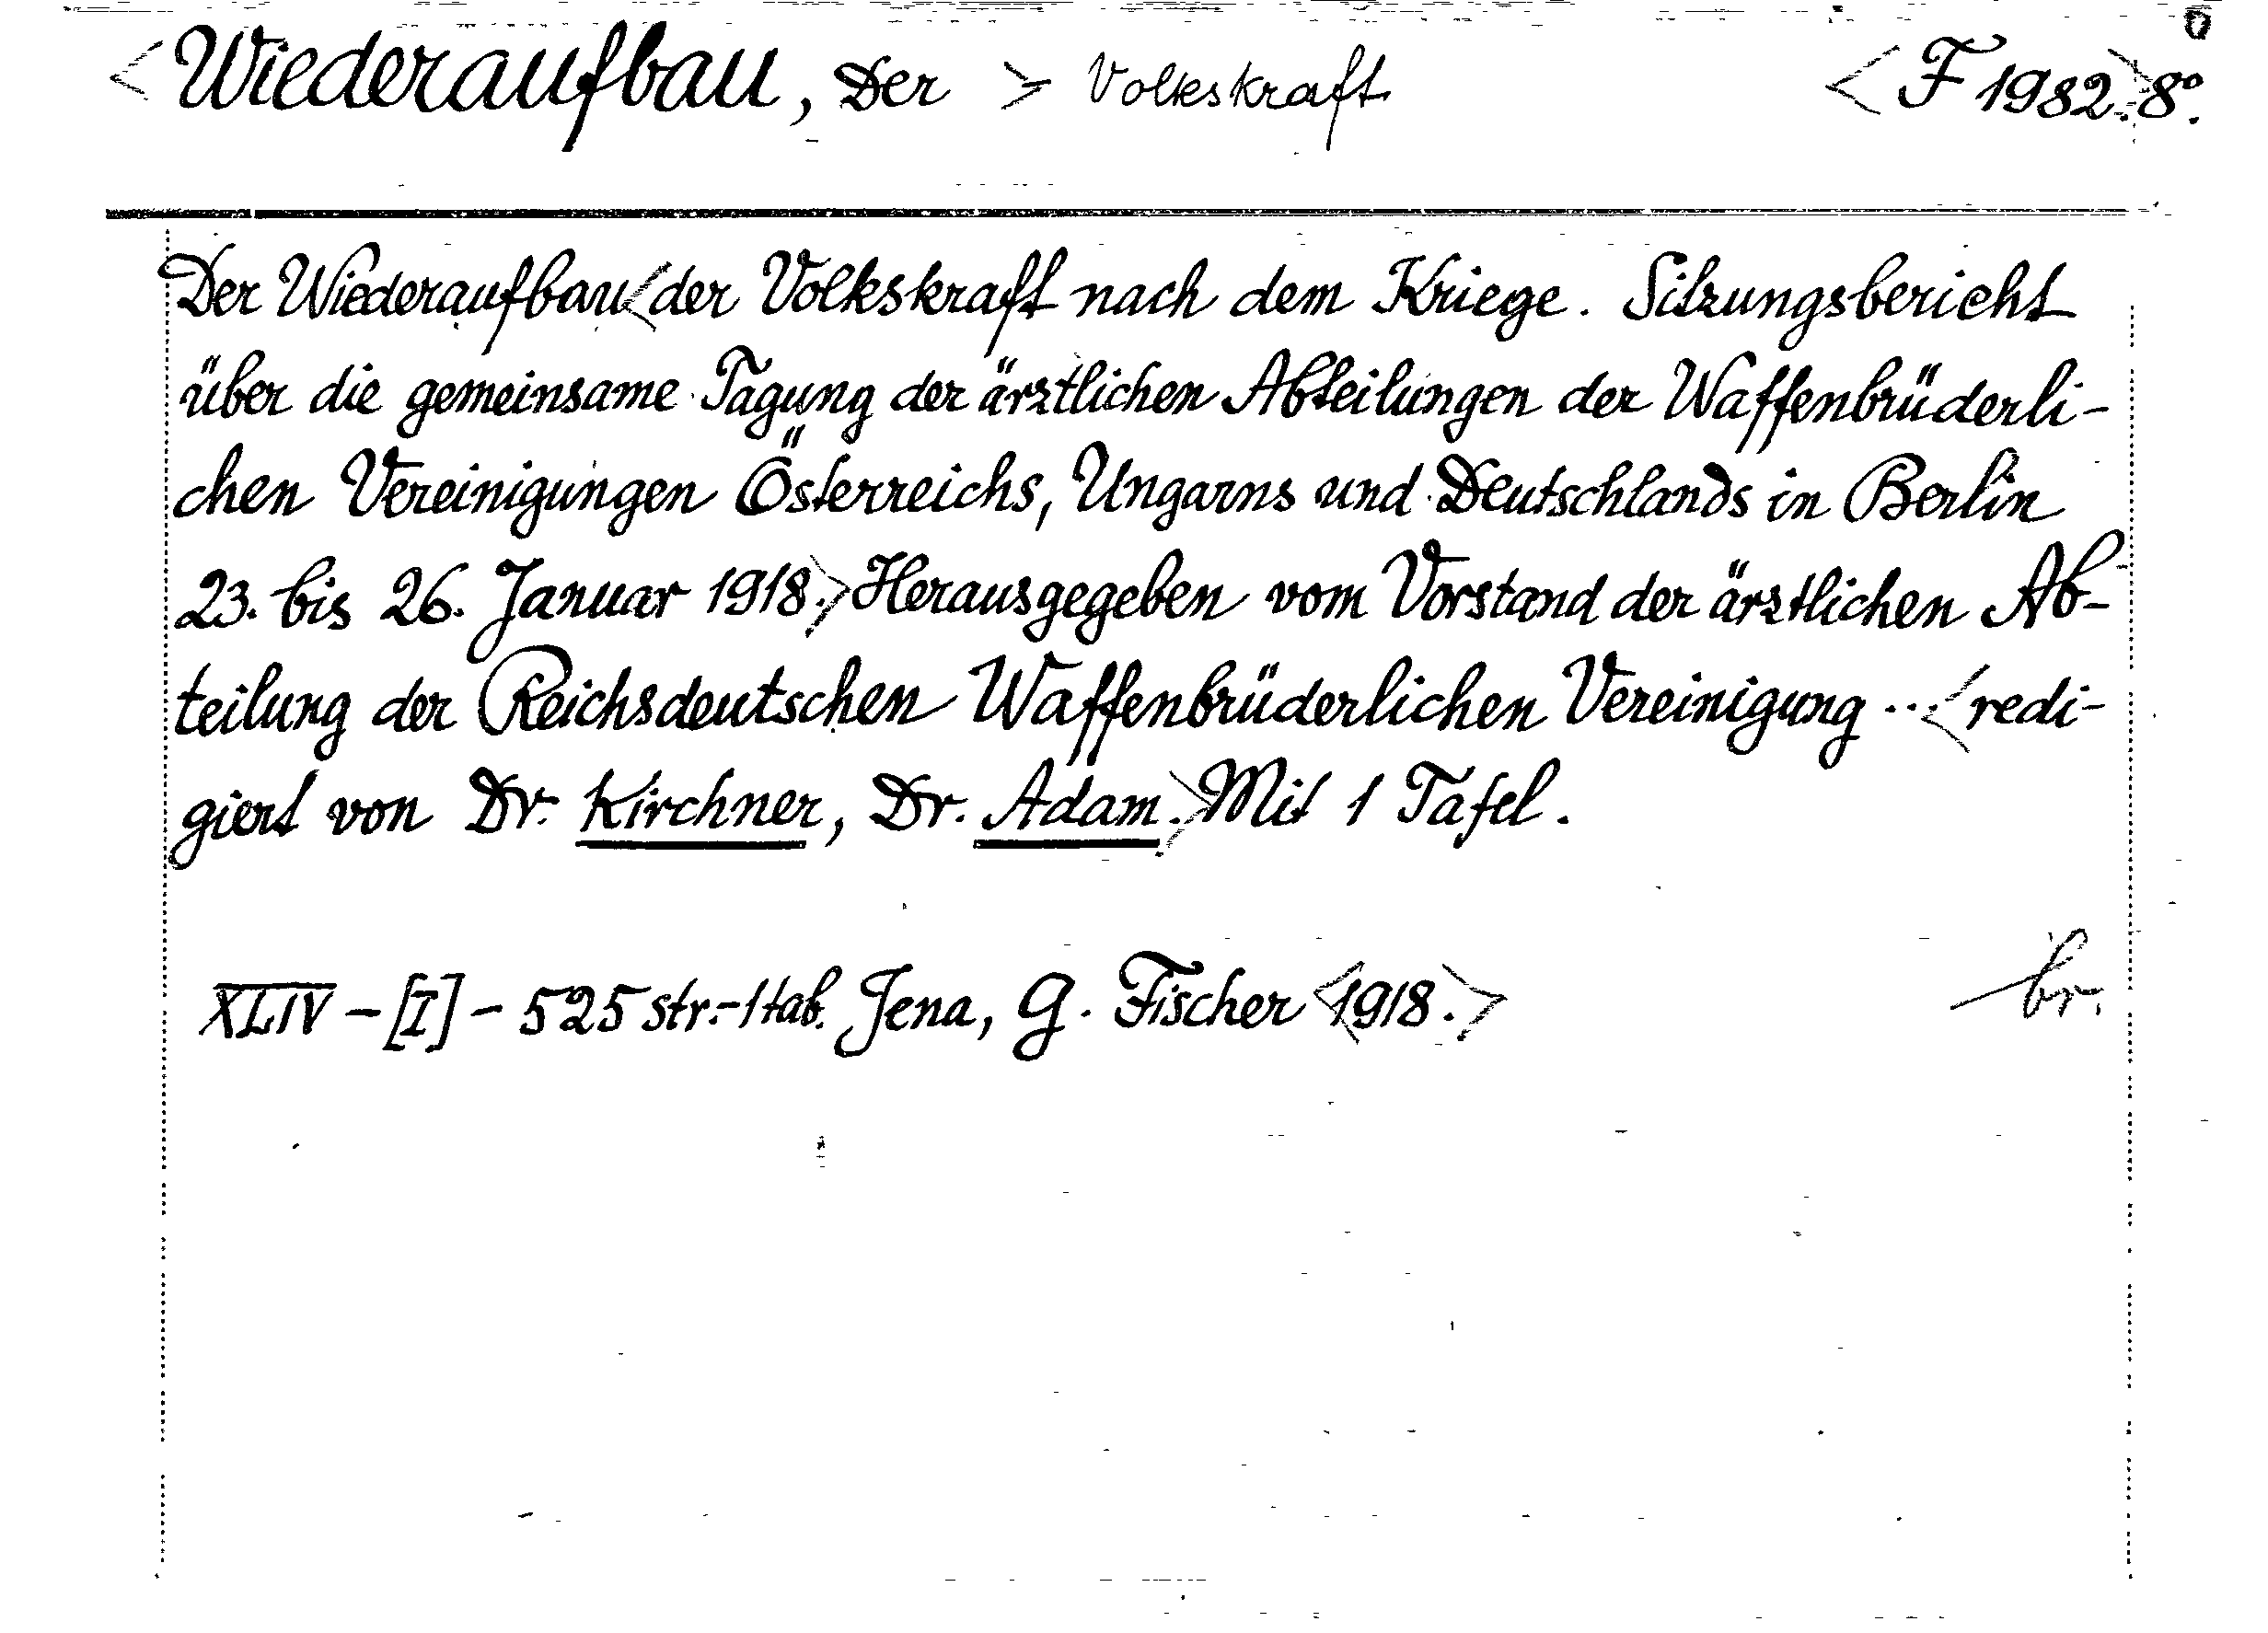 <Wiederaufbau, Der > Volkskraft <F 1982.>8°.
Der Wiederaufbau<der Volkskraft nach dem Kriege. Sitzungsbericht
über die gemeinsame Tagung der ärztlichen Abteilungen der Waffenbrüderli-
chen Vereinigungen Österreichs, Ungarns und Deutschlands in Berlin
23. bis 26. Januar 1918.>Herausgegeben vom Vorstand der ärztlichen Ab-
teilung der Reichsdeutschen Waffenbrüderlichen Vereinigung ...<redi-
giert von Dr. Kirchner, Dr. Adam.>Mit 1 Tafel.
XLIV - [I] - 525 str.-1 tab. Jena, G. Fischer <1918.>
br.